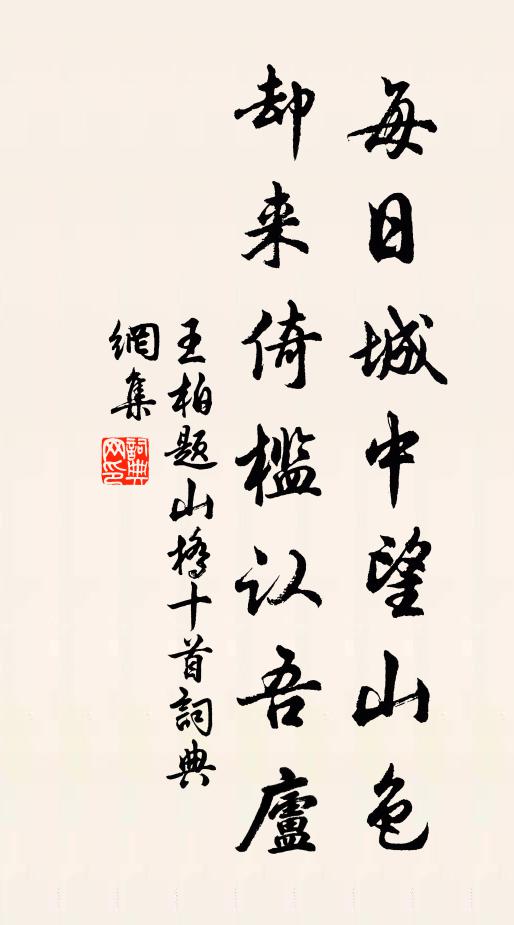 每日城中望山色
却来倚槛认吾廬
王柏题山橋十首詞典
網集
詞典網印